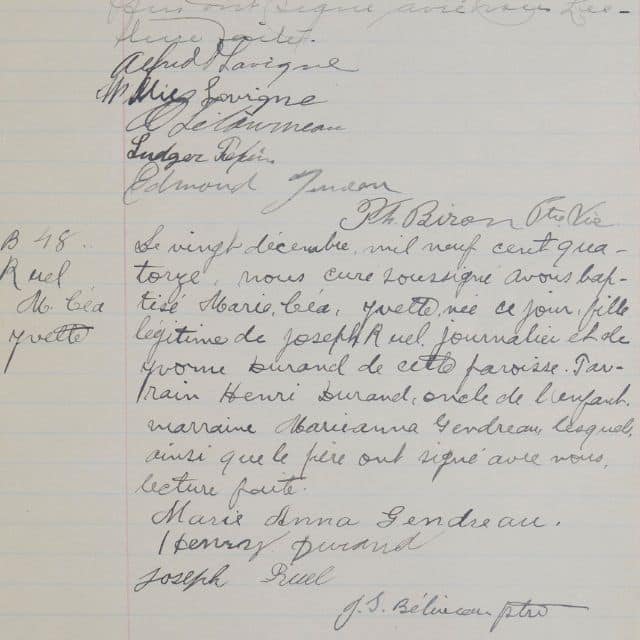 qui ont signé avec nous. Lec-
ture faite.
Alfred Lavigne
Willie Lavigne
Ludger Pepin
Edmond Juneau
Ph. Biron Ptre Vic
B 48.
Ruel
M. Céa
Yvette
Le vingt décembre, mil neuf cent qua-
torze, nous curé soussigné avons bap-
tisé Marie, Céa, Yvette, née ce jour, fille
légitime de Joseph Ruel, journalier et de
Yvonne Durand de cette paroisse. Par-
rain Henri Durand, oncle de l'enfant.
marraine Marieanna Gendreau, lesquels,
ainsi que le père ont signé avec nous,
lecture faite.
Marie Anna Gendreau.
Henry Durand
Joseph Ruel
J. S. Béliveau ptre